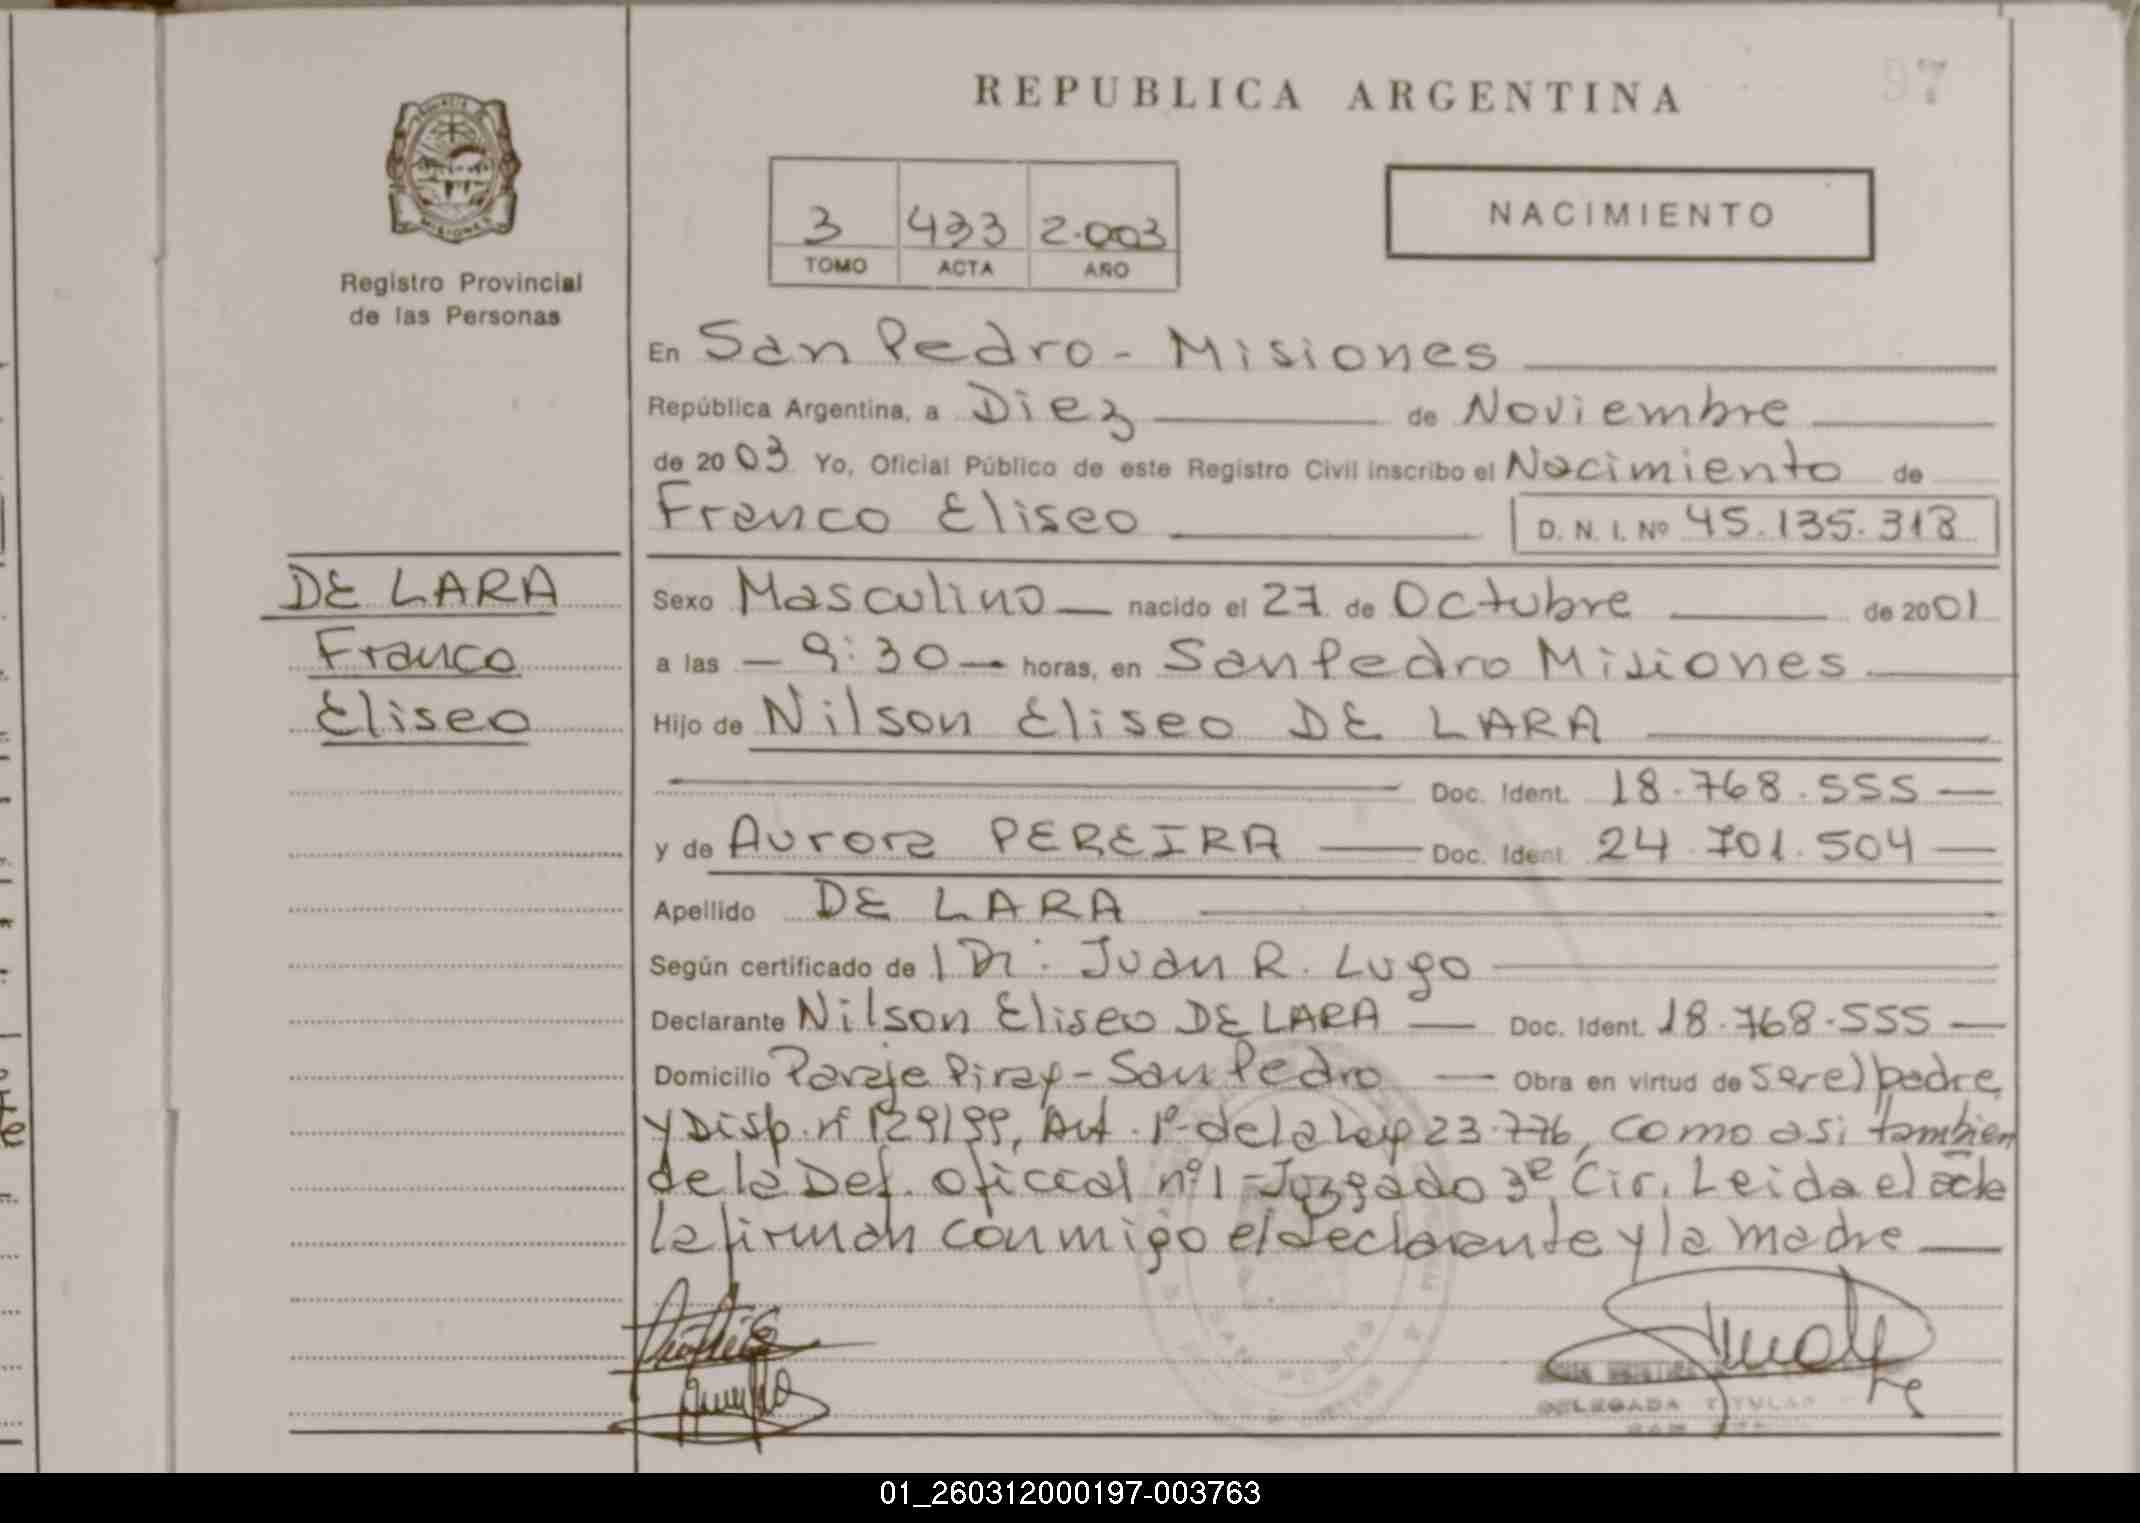 REPUBLICA ARGENTINA
97
MISIONES
Registro Provincial
de las Personas
3 433 2.003
TOMO ACTA AÑO
NACIMIENTO
En San Pedro - Misiones
República Argentina, a Diez de Noviembre
de 2003 Yo, Oficial Público de este Registro Civil inscribo el Nacimiento de
Franco Eliseo D. N. I. Nº 45.135.318
DE LARA
Franco
Eliseo
Sexo Masculino nacido el 27 de Octubre de 2001
a las - 9:30 - horas, en San Pedro Misiones
Hijo de Nilson Eliseo DE LARA
Doc. Ident. 18.768.555
y de Aurora PEREIRA Doc. Ident. 24.701.504
Apellido DE LARA
Según certificado de l Dr: Juan R. Lugo
Declarante Nilson Eliseo DE LARA Doc. Ident. 18.768.555
Domicilio Paraje Piray - San Pedro Obra en virtud de ser el padre
y Disp. nº 129/99, Art. 1º de la Ley 23.776, como asi tambien
de la Def. oficial nº 1 - Juzgado 3ª Cir. Leida el acta
la firman conmigo el declarante y la madre
DELEGADA TITULAR
01_260312000197-003763